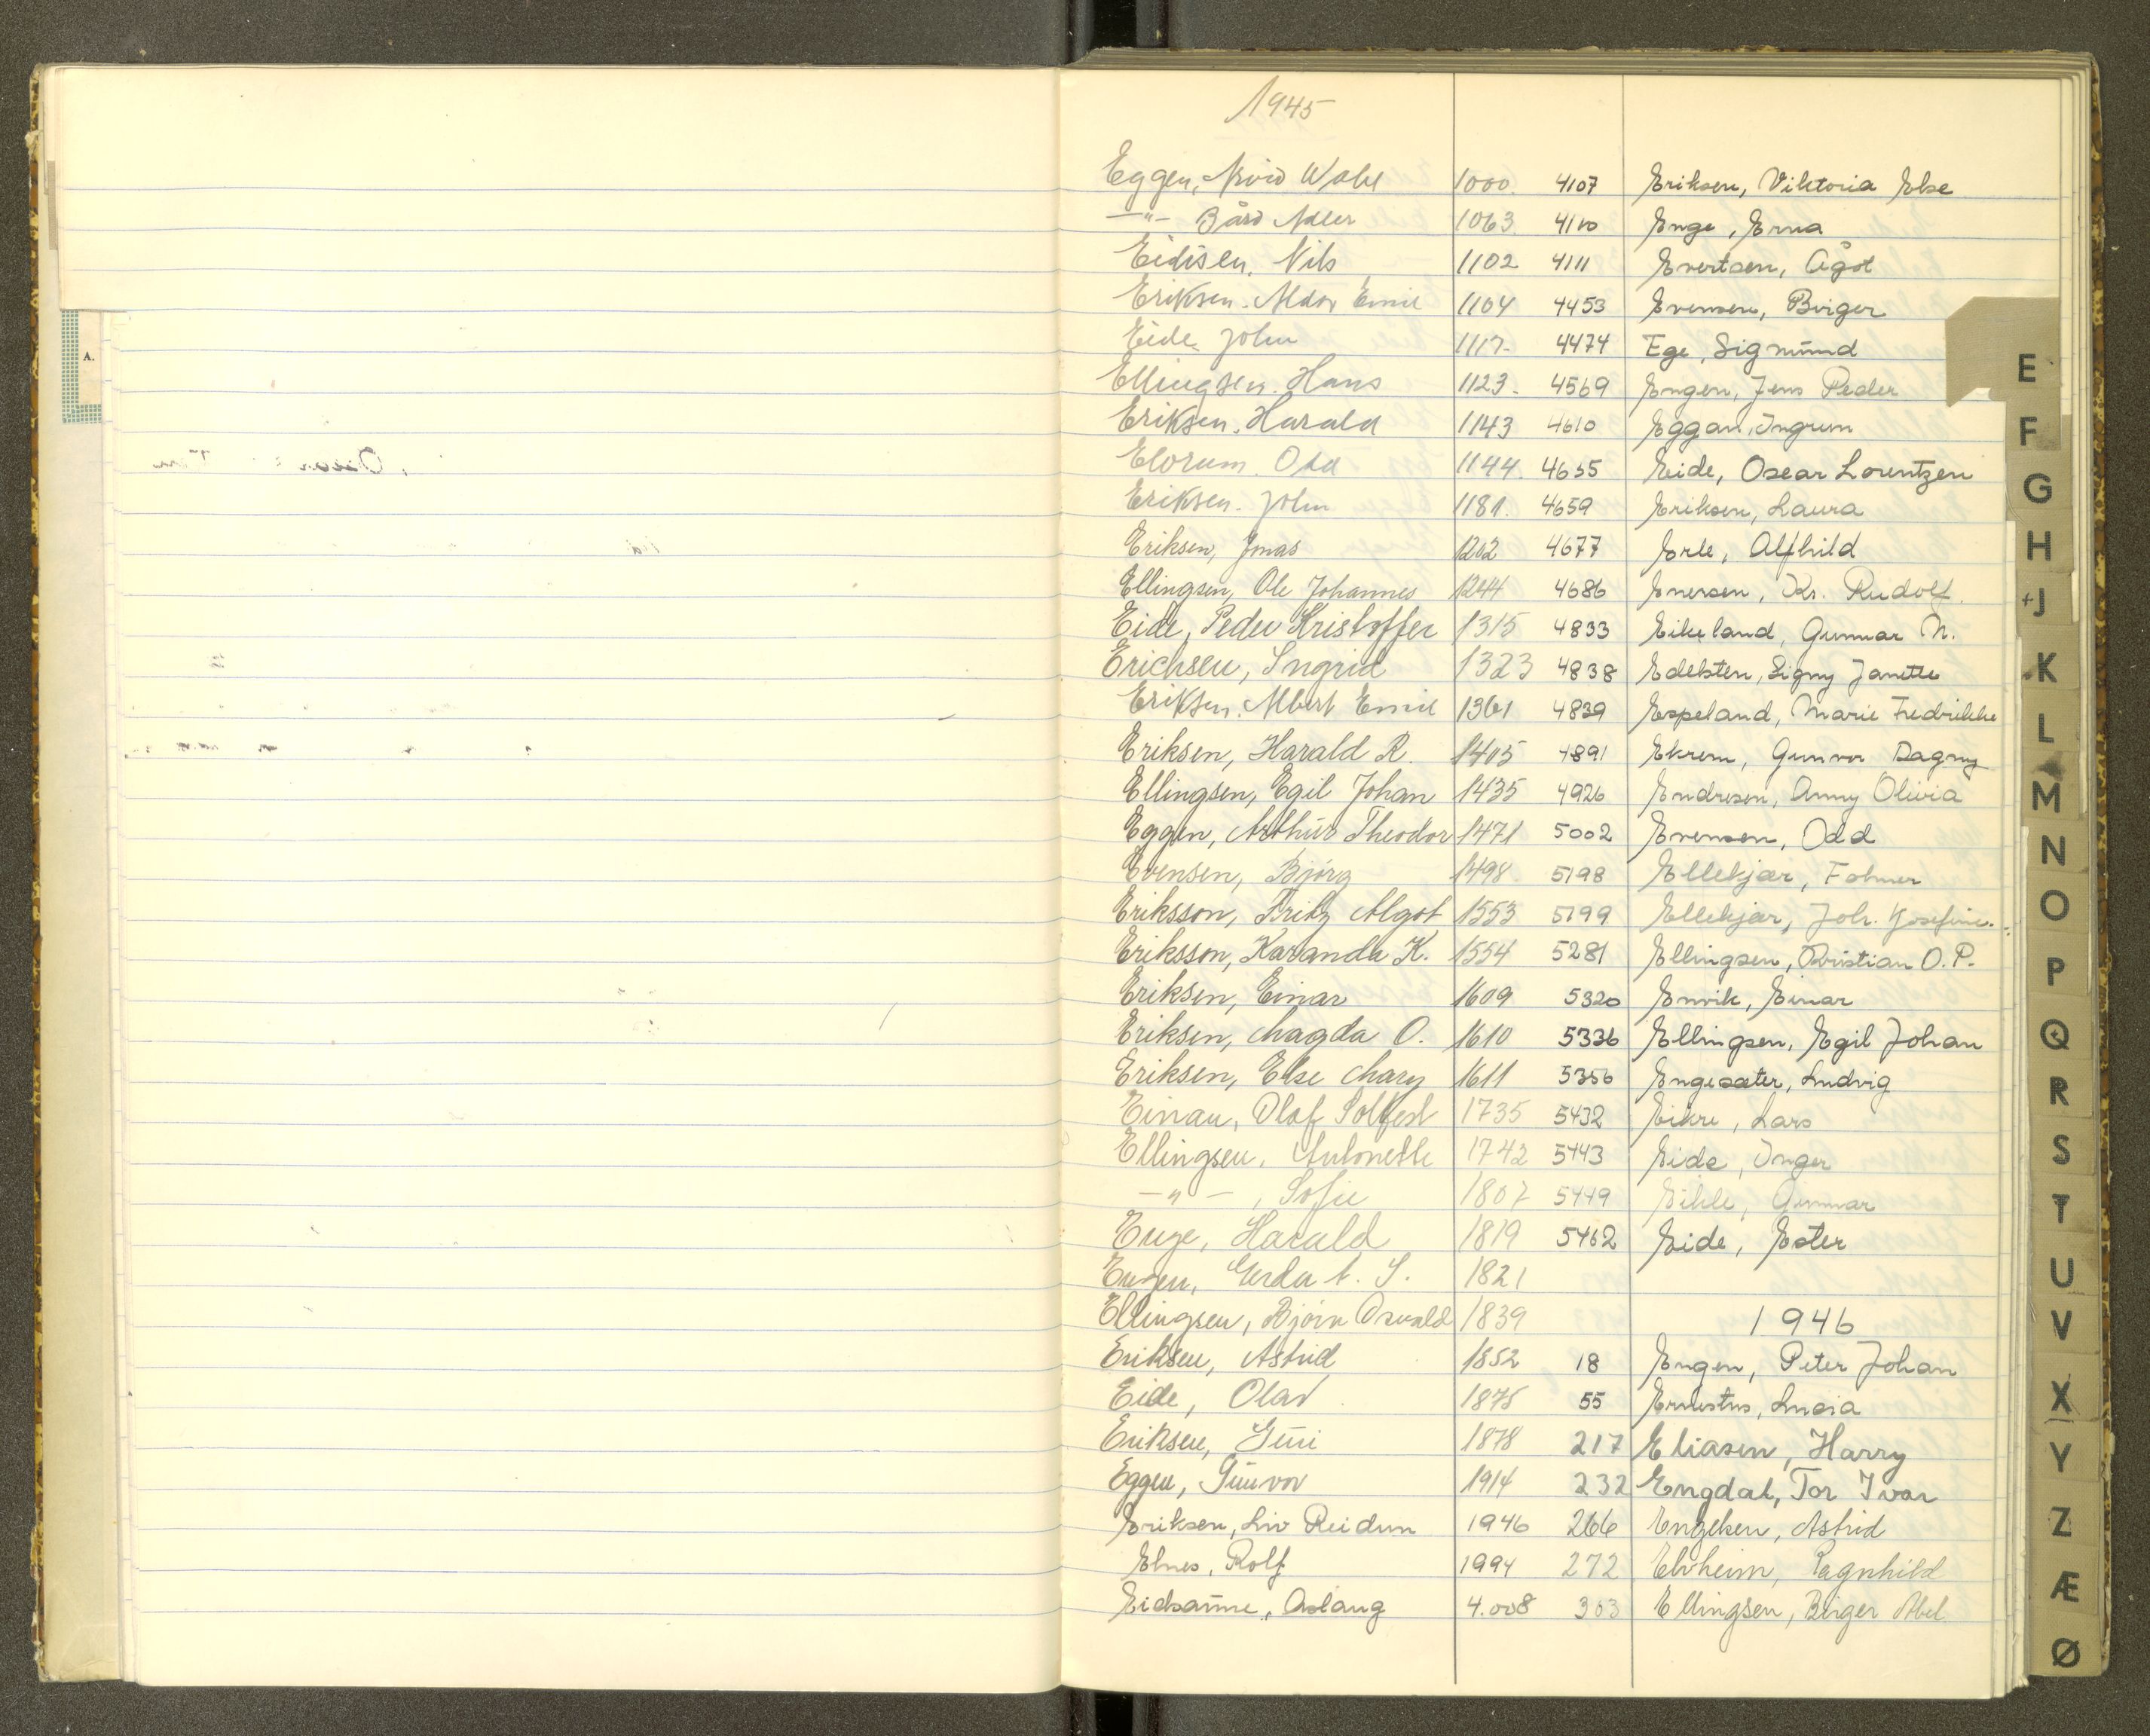 1945
Eggen, Arvid Wabel 1000. 4107 Eriksen, Viktoria Else
—"— Bård Adler 1063. 4110 Enge, Erna
Eidisen. Nils 1102 4111 Evertsen, Ågot
Eriksen. Aldor Emil 1104 4453 Evensen, Birger
Eide. John 1117- 4474 Ege, Sigmund
Ellingsen. Hans 1123- 4569 Engen, Jens Peder
Eriksen. Harald 1143 4610 Eggan, Ingrun
Elorum. Odd 1144. 4655 Eide, Oscar Lorentzen
Eriksen. John 1181. 4659 Eriksen, Laura
Eriksen, Jonas 1202 4677 Erle, Alfhild
Ellingsen, Ole Johannes 1244 4686 Enersen, Kr. Rudolf.
Eide, Peder Kristoffer 1315 4833 Eikeland, Gunnar N.
Erichsen, Ingrid 1323 4838 Edelsten, Signy Janette
Eriksen. Albert Emil 1361 4839 Espeland, Marie Fredrikke
Eriksen, Harald R. 1405 4891 Ekrem, Gunvor Dagny
Ellingsen, Egil Johan 1435 4926 Endresen, Anny Olivia
Eggen, Arthur Theodor 1471 5002 Evensen, Odd
Evensen, Bjørg 1498 5198 Ellekjær, Folmer
Eriksson, Fritz Algot 1553 5199 Ellekjær, Joh. Josefine.
Eriksson, Karanda K. 1554 5281 Ellingsen, Kristian O. P.
Eriksen, Einar 1609 5320 Envik, Einar
Eriksen, Magda O. 1610 5336 Ellingsen, Egil Johan
Eriksen, Else Mary 1611 5356 Engesæter, Ludvig
Einan, Olaf Solfest 1735 5432 Eikre, Lars
Ellingsen, Antonette 1742 5443 Eide, Inger
—"—, Sofie 1807 5449 Eikle, Gunnar
Enge, Harald 1819 5462 Eide, Ester
Engen, Gerda A. S. 1821
Ellingsen, Bjørn Osvald 1839 1946
Eriksen, Astrid 1852 18 Engen, Peter Johan
Eide, Olav 1875 55 Ernestus, Lucia
Eriksen, Guri 1878 217 Eliasen, Harry
Eggen, Gunvor 1914 232 Engdal, Tor Ivar
Eriksen, Liv Reidun 1946 266 Engelsen, Astrid
Elnes, Rolf 1994 272 Elvheim, Ragnhild
Eidsaune, Aslaug 4.008 303 Ellingsen, Birger Abel
A.
E
F
G
H
J
K
L
M
N
O
P
Q
R
S
T
U
V
X
Y
Z
Æ
Ø